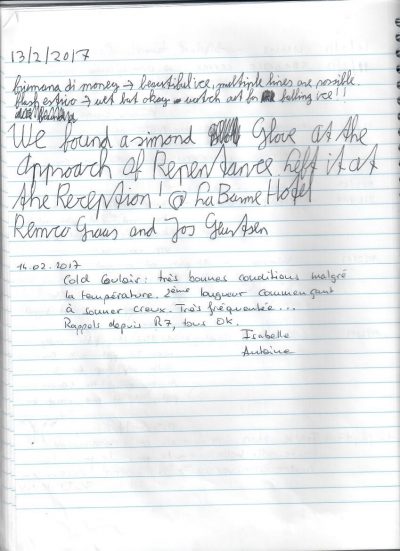 13/2/2017
biemana di money → beautiful ice, multiple lines are possible.
flash estivo → wet but okay → watch out for falling ice!!
We found a simond Glove at the
approach of Repentance Left it at
the Reception! @ La Barme Hotel
Remco Graas and Jos Geurtsen
14.02.2017
Cold Couloir : très bonnes conditions malgré
la température. 2ème longueur commençant
à sonner creux. Très fréquentée...
Rappels depuis R7, tous OK.
Isabelle
Antoine